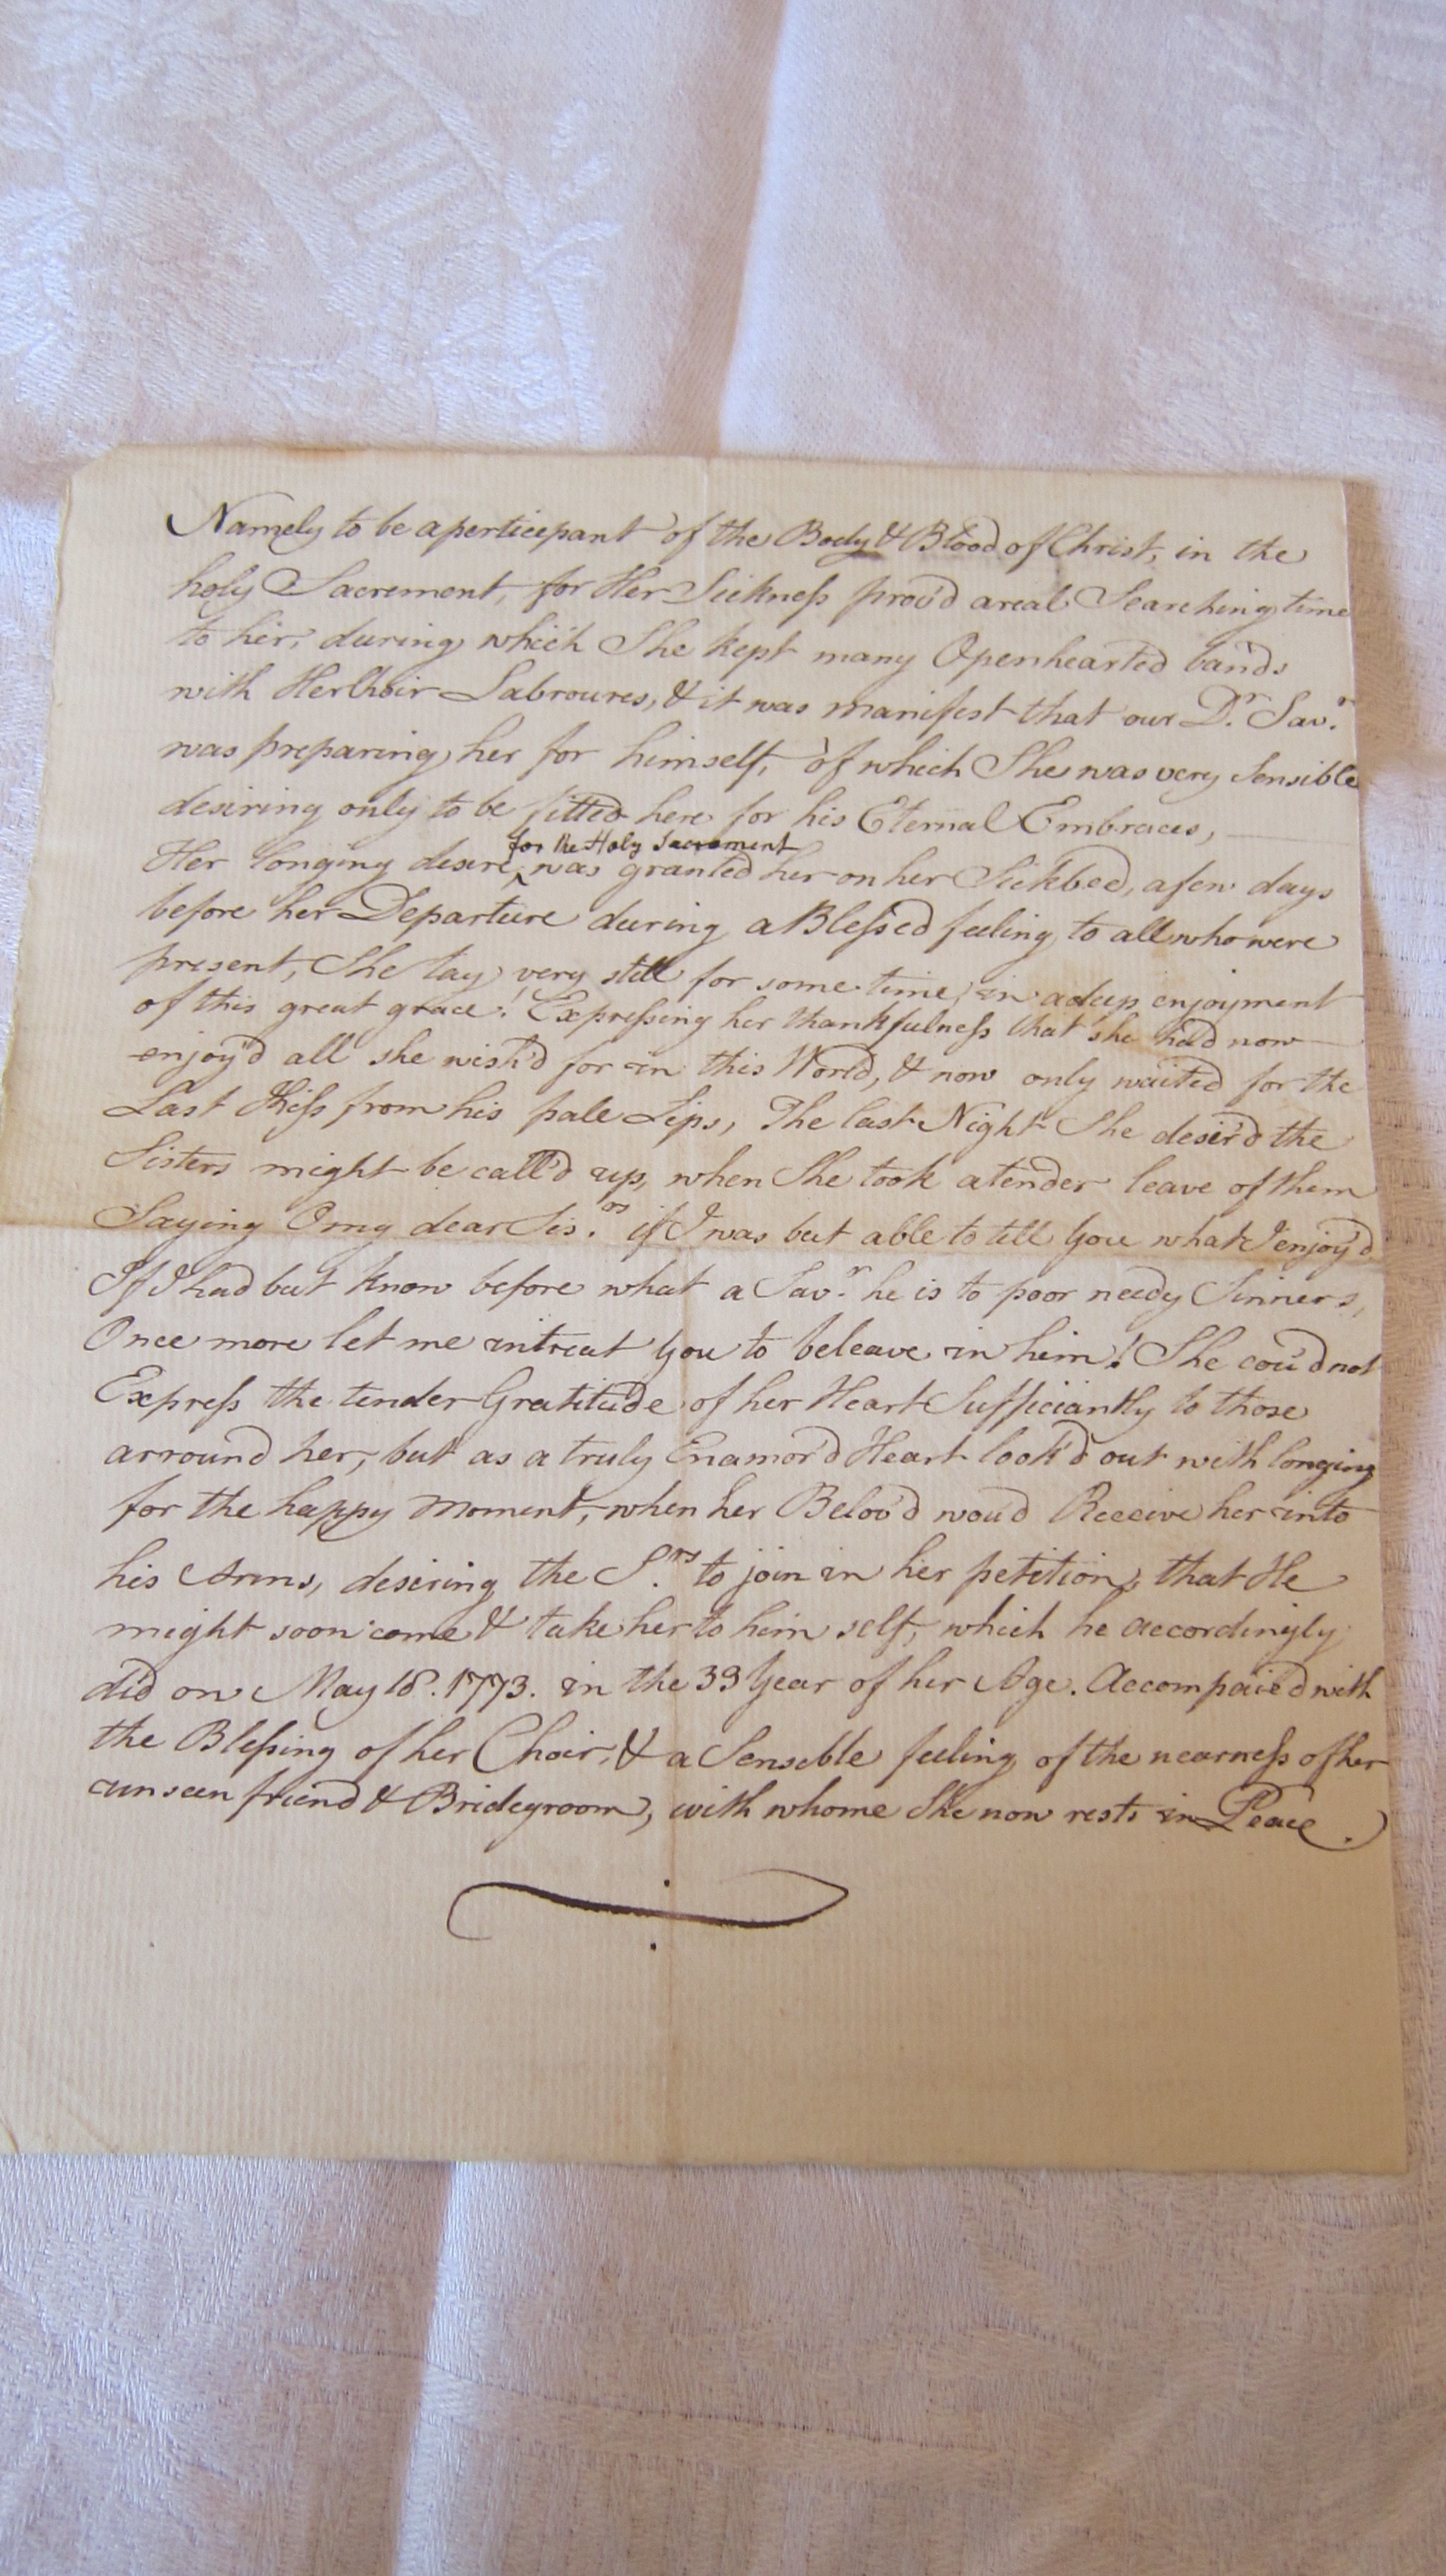 Namely to be a perticepant of the Body & Blood of Christ, in the
holy Sacrement, for Her Sickness prov'd a real Searching time
to her, during which She kept many Openhearted bands
with Her Choir Labroures, & it was manifest that our Dr. Savr.
was preparing her for himself, of which She was very Sensible
desiring only to be fitted here for his Eternal Embraces,
for the Holy Sacrament
Her longing desire ‸ was granted her on her Sickbed, a few days
before her Departure during a Blessed feeling to all who were
present, She lay very still for some time, in a deep enjoyment
of this great grace! Expressing her thankfulness that she had now
enjoy'd all she wish'd for in this World, & now only waited for the
Last Kiss from his pale Lips, The last Night She desir'd the
Sisters might be call'd up, when She took a tender leave of them
Saying O my dear Sis.rs if I was but able to tell You what I enjoy'd
If I had but know before what a Savr. he is to poor needy Sinners,
Once more let me intreat You to beleave in him! She cou'd not
Express the tender Gratitude of her Heart Sufficiantly to those
arround her, but as a truly Enamor'd Heart look'd out with longing
for the happy Moment, when her Belov'd wou'd Receive her into
his Arms, desiring the S.rs to join in her petition, that He
might soon come & take her to him self, which he accordingly
did on May 18. 1773. in the 33 Year of her Age. Accompaied with
the Blessing of her Choir, & a Sensible feeling of the nearness of her
unseen friend & Bridegroom, with whome She now rests in Peace.